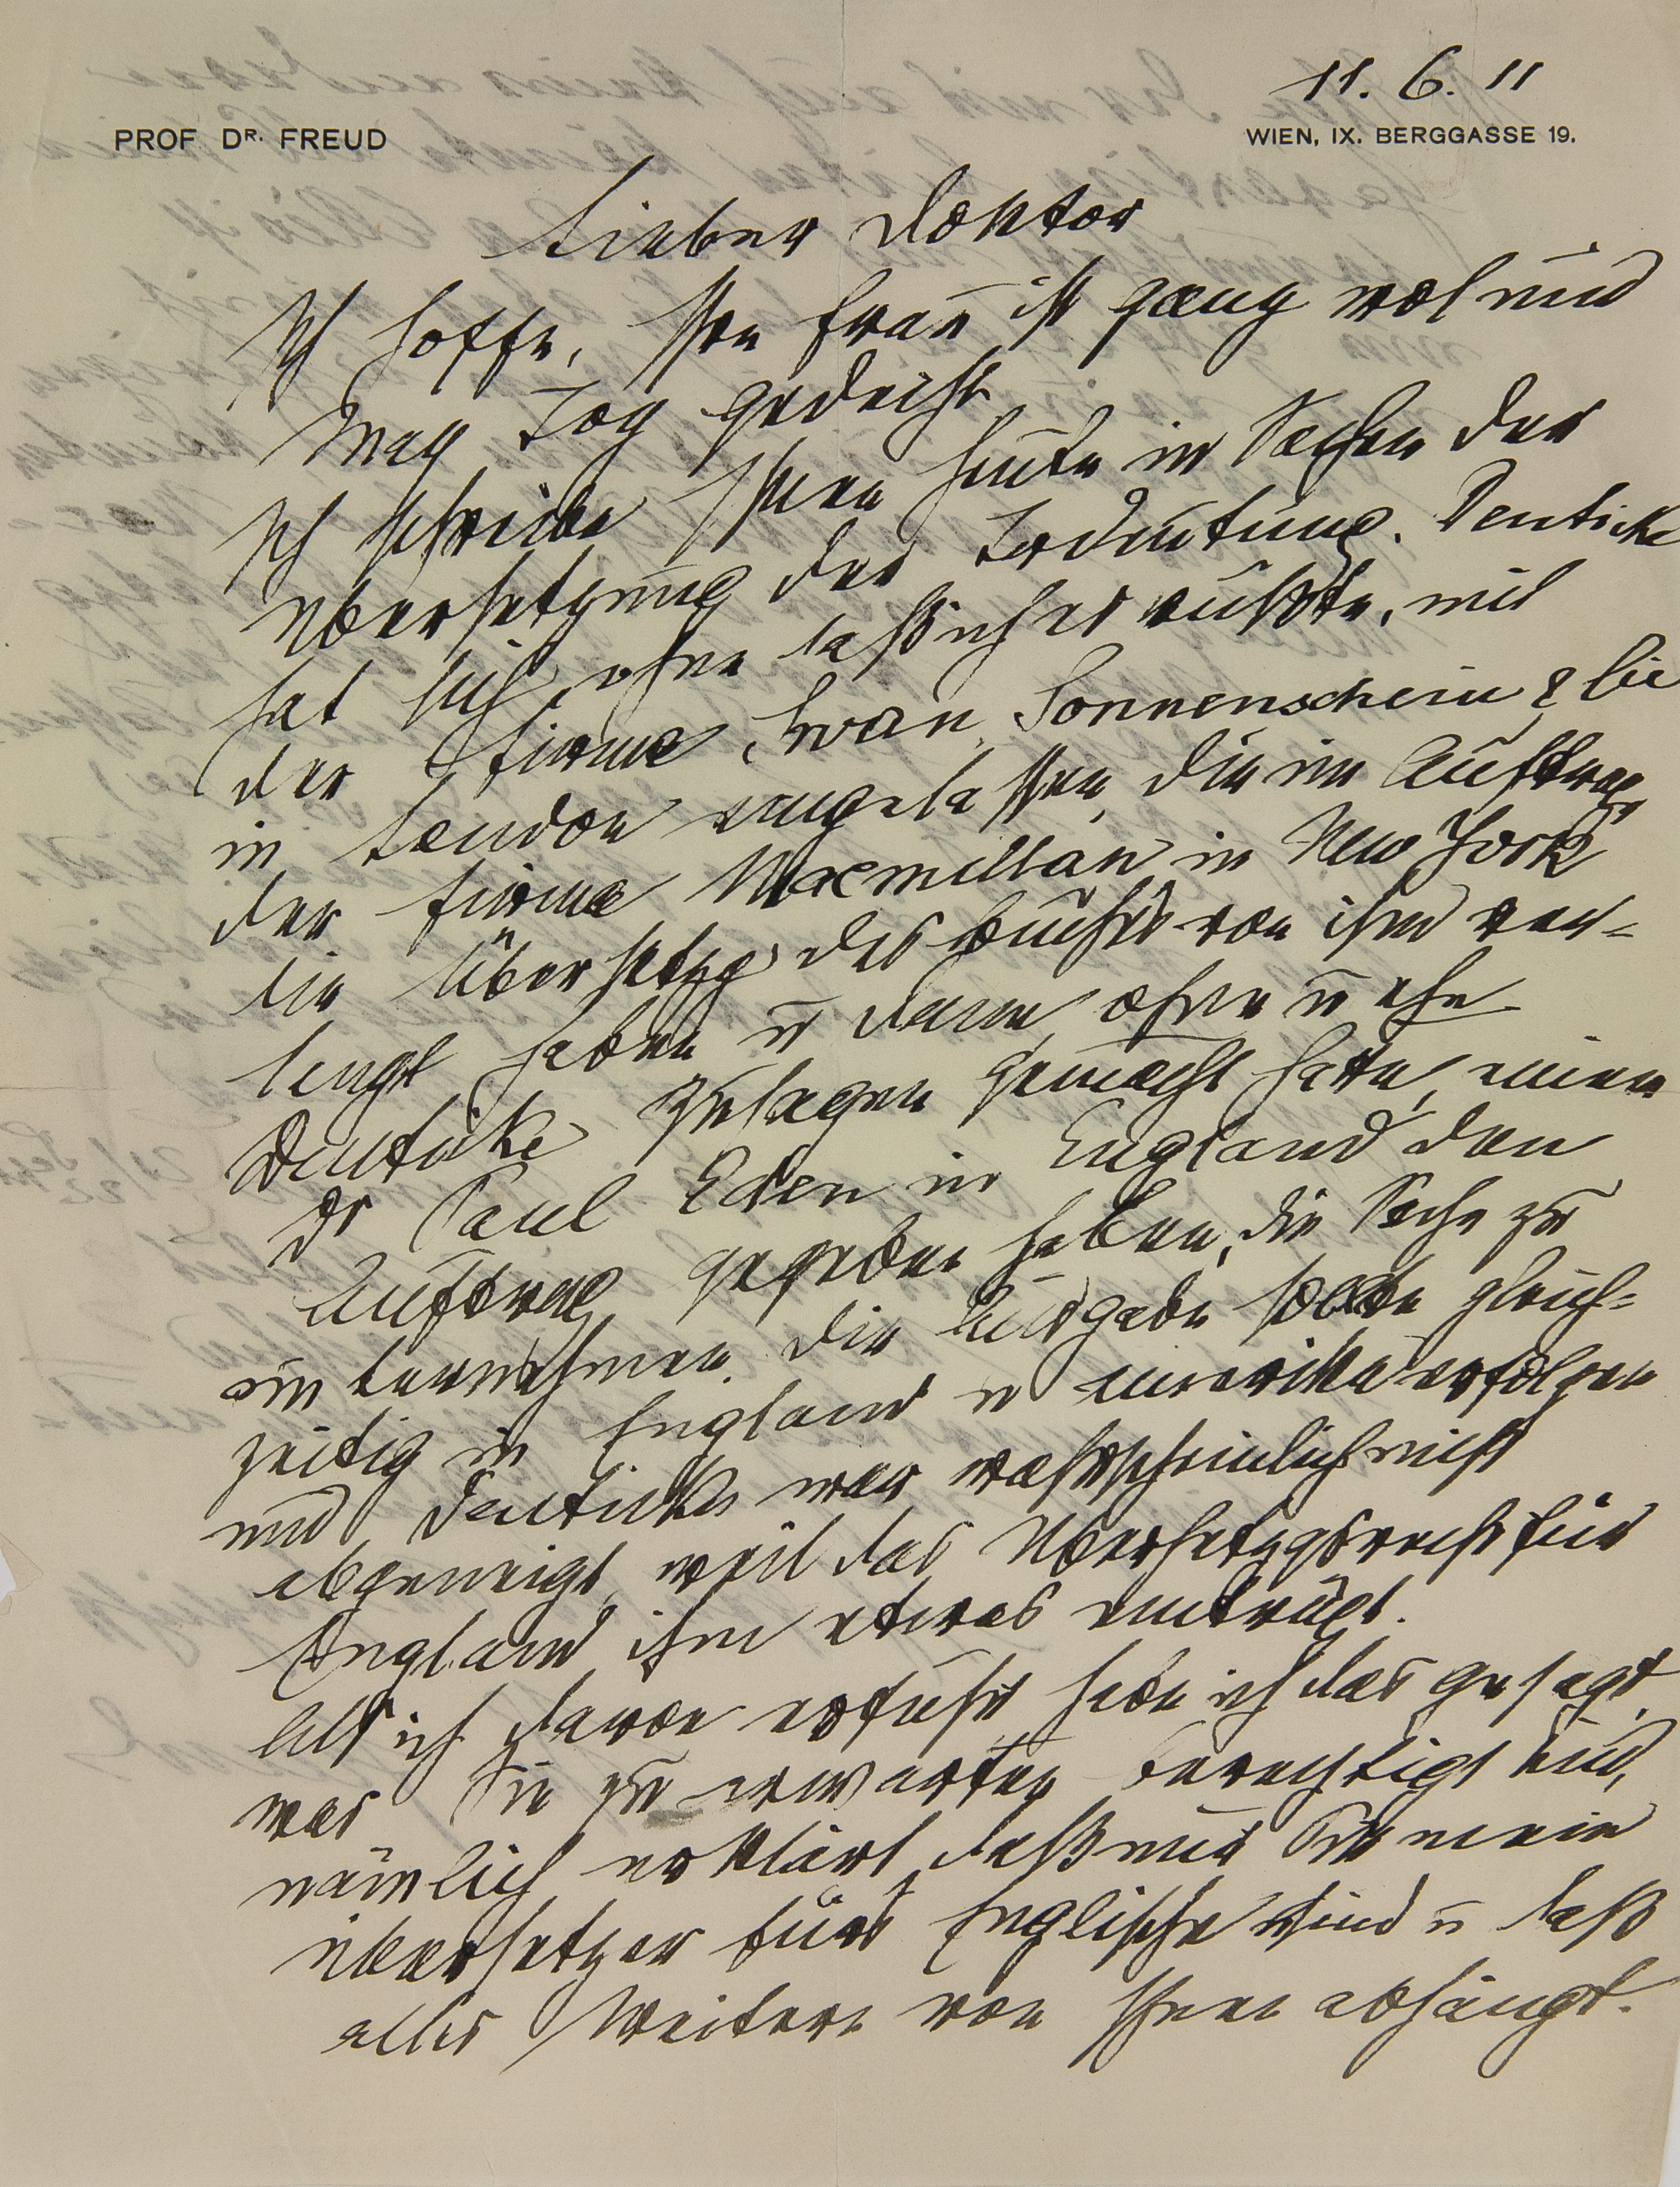 11. 6. 11
PROF. DR. FREUD WIEN, IX. BERGGASSE 19.
Lieber Doktor
Ich hoffe, Ihre Frau ist ganz wol und
May Tog gedeiht.
Ich schreibe Ihnen heute in Sachen der
Übersetzung der Trdeutung. Deuticke
hat sich, ohne daß ich es wußte, mit
der Firma Swan Sonnenschein & Cie
in London eingelassen, die im Auftrag
der Firma Macmillan in New York
die Übersetzg des Buches von ihm ver-
langt haben u dann, ohne
Deuticke Zusagen gemacht hatte, einem
Dr Paul Eden in England den
Auftrag gegeben haben, die Sache zu
unternehmen. Die Ausgabe sollte gleich-
zeitig in England u Amerika erfolgen
und Deuticke war wahrscheinlich nicht
abgeneigt, weil das Übersetzgsrecht für
England ihm etwas einträgt.
Als ich davon erfuhr habe ich das gesagt,
was Sie zu erwarten berechtigt sind,
nämlich erklärt, daß nur Sie mein
Übersetzer fürs Englische sind u daß
alles Weitere von Ihnen abhängt.